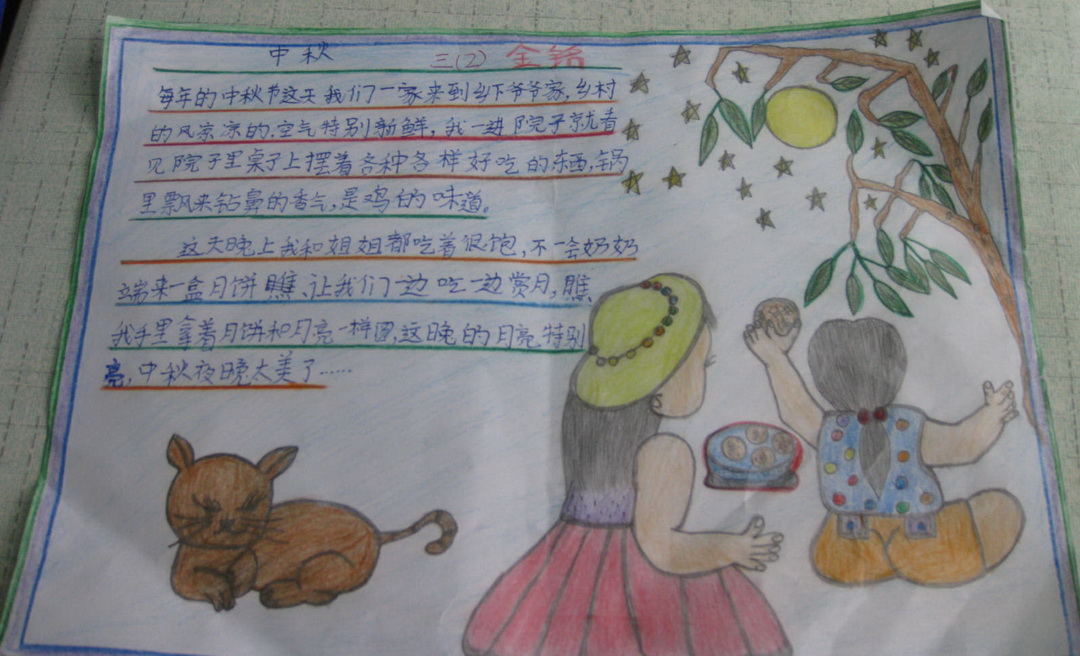 中秋 三(2) 金铪
每年的中秋节这天我们一家来到乡下爷爷家,乡村
的风凉凉的,空气特别新鲜,我一进院子就看
见院子里桌子上摆着各种各样好吃的东西,锅
里飘来钻鼻的香气,是鸡的味道。
这天晚上我和姐姐都吃着很饱,不一会奶奶
端来一盒月饼瞧、让我们一边吃一边赏月,瞧
我手里拿着月饼和月亮一样圆,这晚的月亮特别
亮,中秋夜晚太美了……